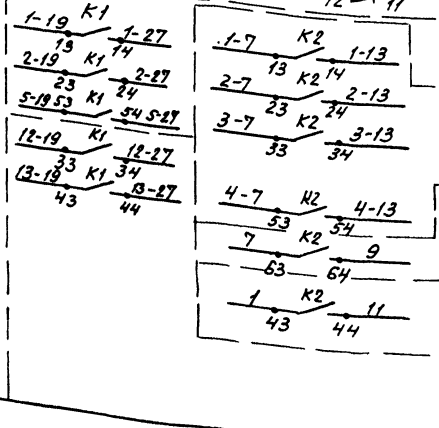 12 11
K1
1-19 1-27
13 14
2-19 K1 2-27
23 24
5-19 53 K1 54 5-27
12-19 K1 12-27
33 34
13-19 K1 13-27
43 44
1-7 K2 1-13
13 14
2-7 K2 2-13
23 24
3-7 K2 3-13
33 34
4-7 K2 4-13
53 54
7 K2 9
63 64
1 K2 11
43 44